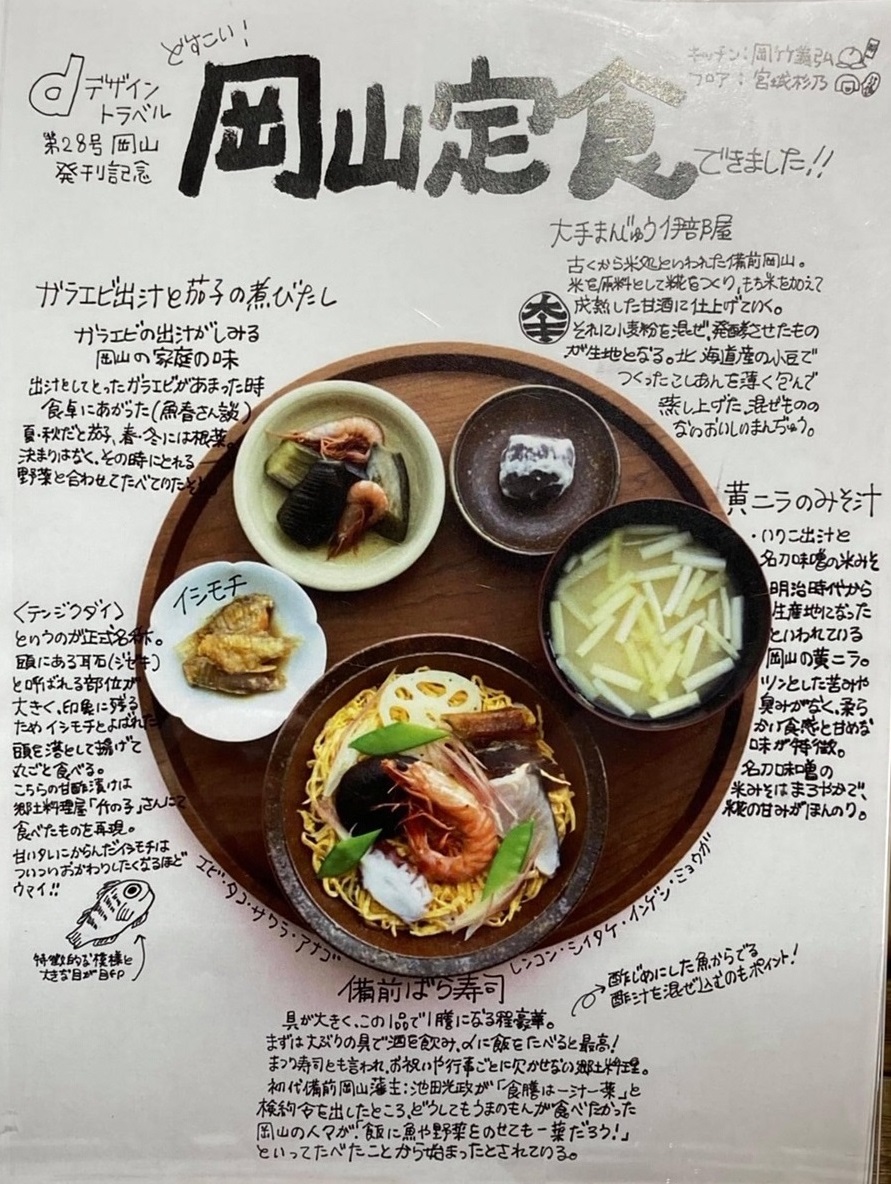 どすこい!
d デザイン
トラベル
第28号 岡山
発刊記念
岡山定食
できました!!
キッチン:岡竹義弘
フロア:宮城杉乃
大手まんぢゅう伊部屋
古くから米処といわれた備前岡山。
米を原料として糀をつくり、もち米を加えて
成熟した甘酒に仕上げていく。
それに小麦粉を混ぜ、発酵させたもの
が生地となる。北海道産の小豆で
つくったこしあんを薄く包んで
蒸し上げた、混ぜものの
ないおいしいまんぢゅう。
大手
ガラエビ出汁と茄子の煮びたし
ガラエビの出汁がしみる
岡山の家庭の味
出汁をしてとったガラエビがあまった時
食卓にあがった(魚春さん談)
夏・秋だと茄子、春・冬には根菜。
決まりはなく、その時にとれる
野菜と合わせてたべていたそう
黄ニラのみそ汁
・いりこ出汁と
名刀味噌の米みそ
明治時代から
生産地になった
といわれている
岡山の黄ニラ。
ツンとした苦みや
臭みがなく、柔ら
かい食感と甘めな
味が特徴。
名刀味噌の
米みそはまろやかで、
糀の甘みがほんのり。
イシモチ
<テンジクダイ>
というのが正式名称。
頭にある耳石(ジセキ)
と呼ばれる部位が
大きく、印象に残る
ためイシモチとよばれた
頭を落として揚げて
丸ごと食べる。
こちらの甘酢漬けは
郷土料理屋「竹の子」さんにて
食べたものを再現。
甘いタレにからんだイシモチは
ついついおかわりしたくなるほど
ウマイ!!
特徴的な模様と
大きな目が目印
エビ・タコ・サワラ・アナゴ
レンコン・シイタケ・インゲン・ミョウガ
備前ばら寿司
酢じめにした魚からでる
酢汁を混ぜ込むのもポイント!
具が大きく、この1品で1膳になる程豪華。
まずは大ぶりの具で酒を飲み、〆に飯をたべると最高!
まつり寿司とも言われ、お祝いや行事ごとに欠かせない郷土料理。
初代備前岡山藩主:池田光政が「食膳は一汁一菜」と
検約令を出したところ、どうしてもうまのもんが食べたかった
岡山の人々が「飯に魚や野菜をのせても一菜だろう!」
といってたべたことから始まったとされている。